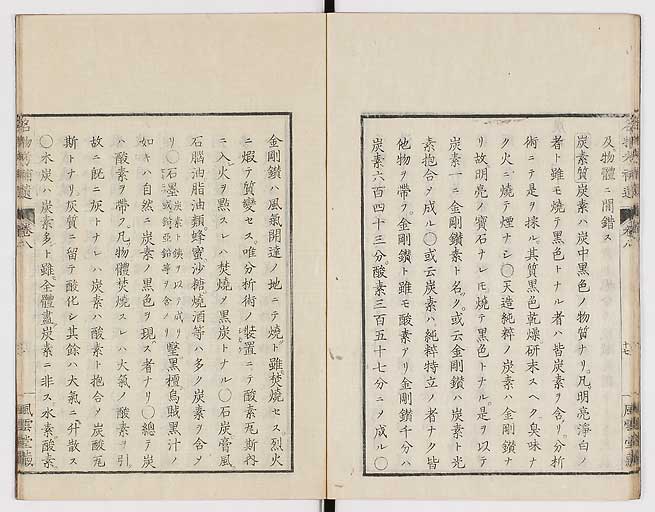 及物體ニ間錯ス
炭素質炭素ハ炭中黒色ノ物質ナリ。凡明亮淨白ノ
者ト雖モ燒テ黒色トナル者ハ皆炭素ヲ含リ。分析
術ニテ是ヲ採ル。其質黒色乾燥研末スヘク臭味ナ
ク火ニ燒テ煙ナシ〇天造純粹ノ炭素ハ金剛鑽ナ
リ故明亮ノ寶石ナレモ燒テ黒色トナル。是ヲ以テ
炭素一ニ金剛鑽素ト名ク。或云金剛鑽ハ炭素ト光
素抱合ノ成ル〇或云炭素ハ純粹特立ノ者ナク皆
他物ヲ帶フ。金剛鑽ト雖モ酸素アリ金剛鑽千分ハ
炭素六百四十三分。酸素三百五十七分ニメ成ル〇
金剛鑽ハ風氣開達ノ地ニテ燒ト雖焚燒セス。烈火
ニ煆テ質變セス。唯分析術ノ裝置ニテ酸素瓦斯内
ニ入火ヲ點スレハ焚燒メ黒炭トナル〇石炭膏風
石腦油脂油類蜂蜜沙糖燒酒等ハ多ク炭素ヲ含メ
リ〇石墨炭素ト鐵ヲ以テ成リ或錫亞鉛等ヲ含メリ墼黒檀烏賊黒汁ノ
如キハ自然ニ炭素ノ黒色ヲ現ス者ナリ〇總テ炭
ハ酸素ヲ帶フ。凡物體焚燒スレハ大氣ノ酸素ヲ引
故ニ既ニ灰トナレハ炭素ハ酸素ト抱合メ炭酸瓦
斯トナリ灰質ニ留テ酸化シ其餘ハ大氣ニ升散ス
〇木炭ハ炭素多ト雖全體盡炭素ニ非ス水素酸素
卷八
風雲堂藏